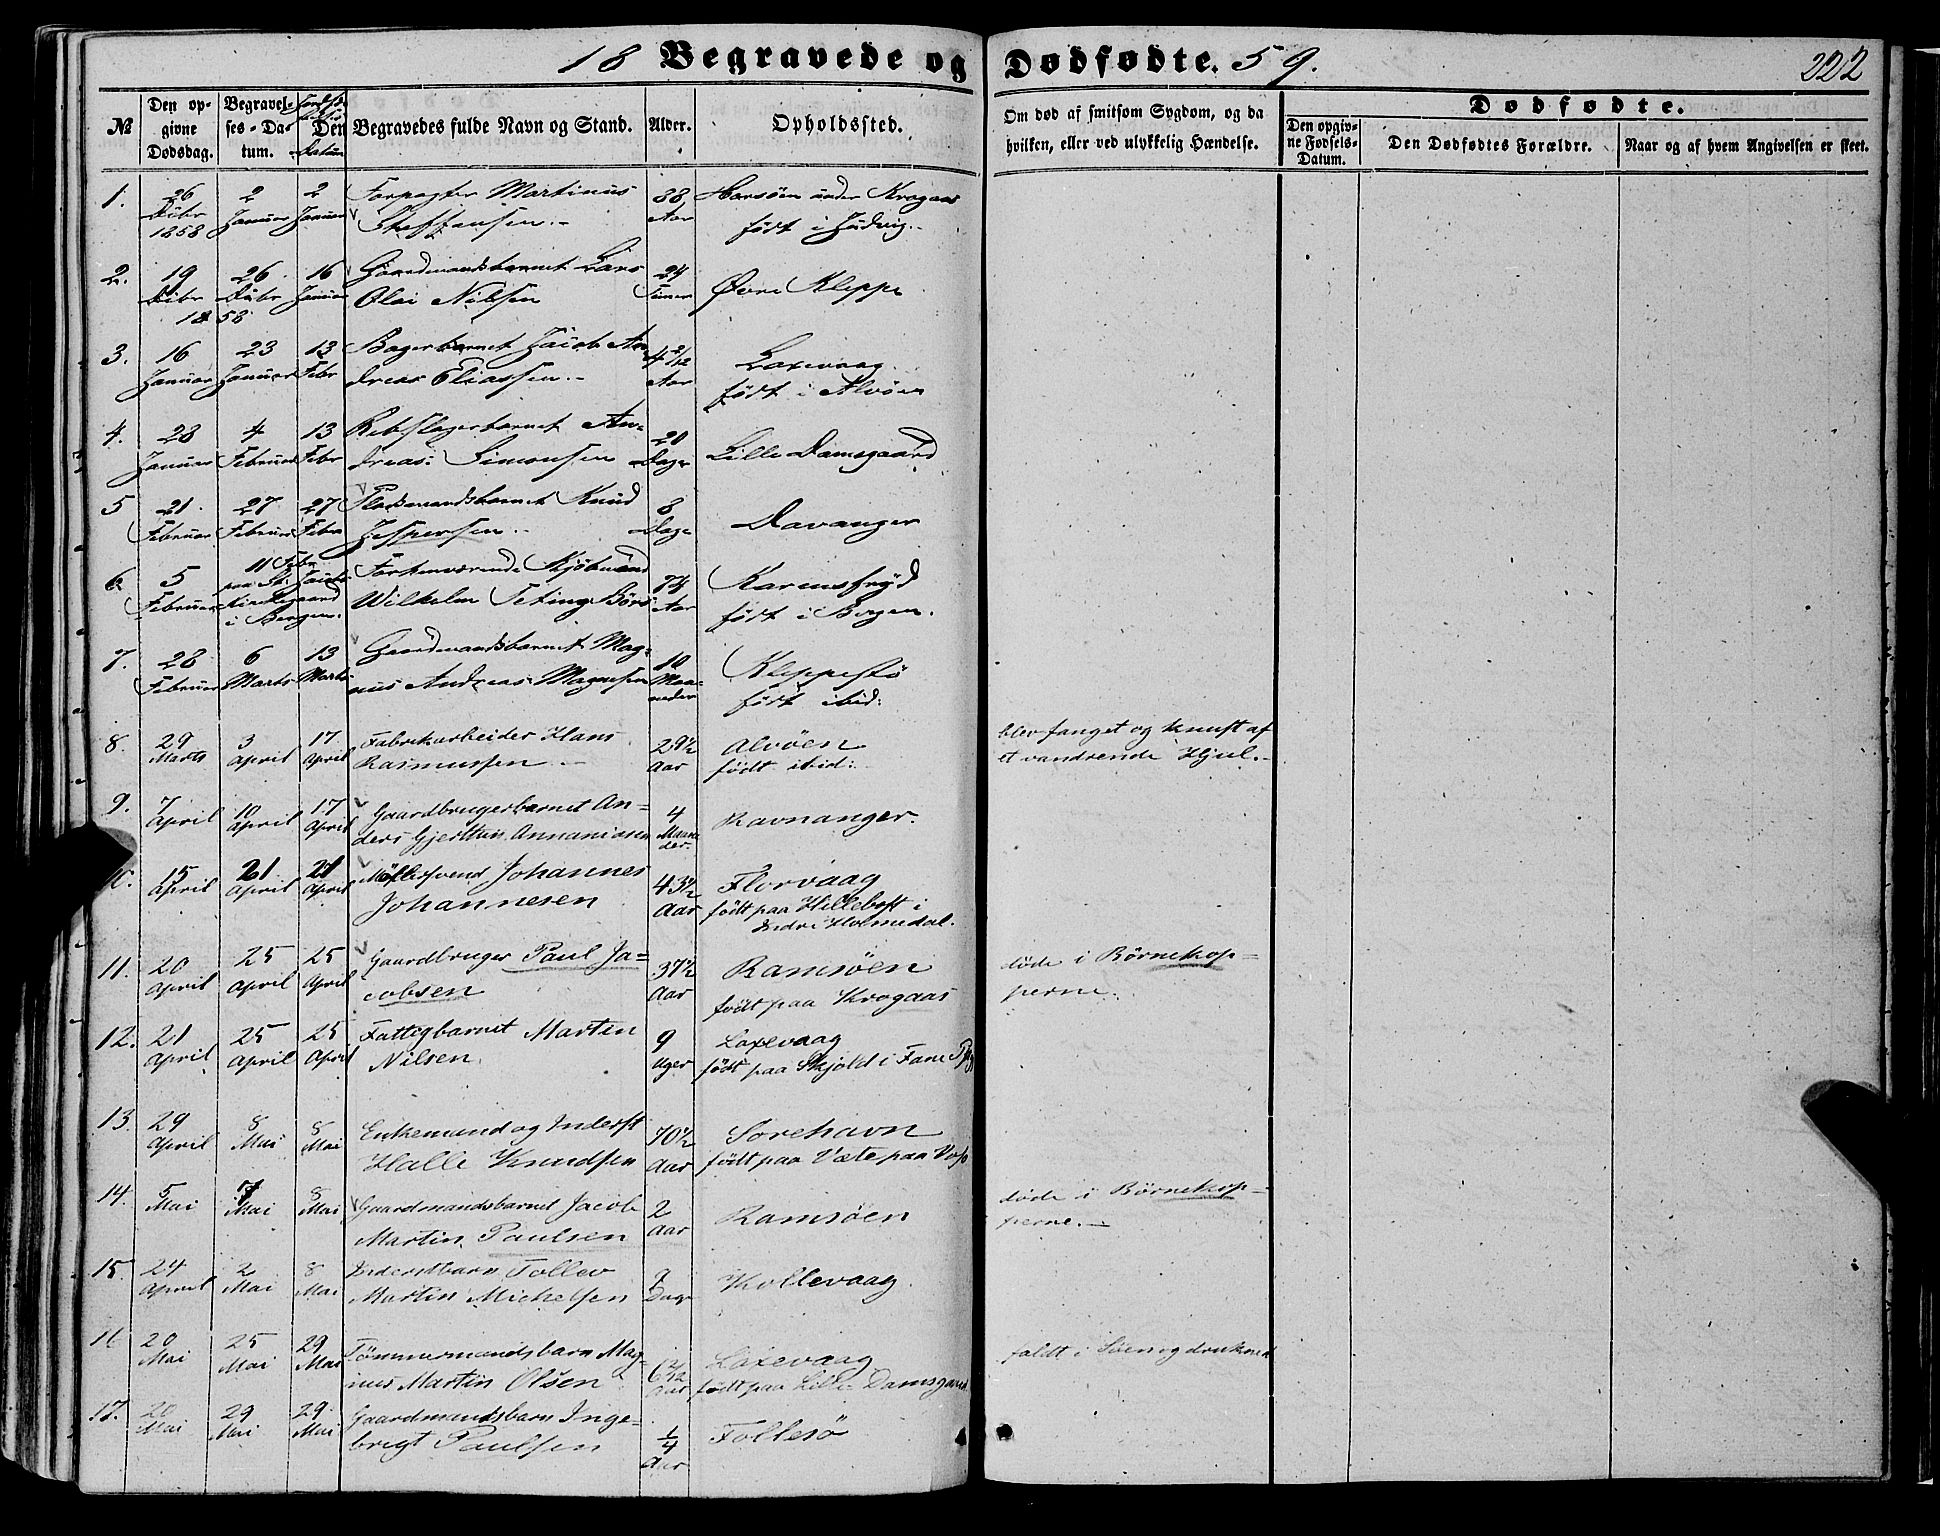 18 Begravede og Dødfødte. 59.
222
№
Den opgivne Dødsdag.
Begravelses-Datum.
Den
Datum
Begravedes fulde Navn og Stand.
Alder.
Opholdssted.
Om død af smitsom Sygdom, og da hvilken, eller ved ulykkelig Hændelse.
Dødfødte.
Den opgivne Fødsels-Datum.
Den Dødfødtes Forældre.
Naar og af hvem Angivelsen er skeet.
1. 26 Dcbr 1858 2 Januar 2 Januar Forpagter Martinus Steffensen. 38 Aar Horsøen under Krogaas født i
2. 19 Dcbr 26 Dcbr 1858 16 Januar Gaardmandsbarnet Lars Olai Nilsen 24 Timer Øvre Kleppe
3. 16 Januar 23 Januar 13 Febr Bagerbarnet Jacob Andreas Eliassen. 4 2/12 Aar Laxevaag født i Alvøen
4. 28 Januar 4 Februar 13 Febr Rebslagerbarnet Andreas Simonsen 20 Dage Lille Damsgaard
5 21 Februar 27 Februar 27 Febr Pladsmandsbarnet Knud Jespersen. 8 Dage Davanger
6. 5 Februar 11 Febr paa St. Jacobs Kirkegaard i Bergen. Forhenværende Kjøbmand Wilhelm Teting Børs 74 Aar født i Bergen.
7. 28 Februar 6 Marts 13 Marts Gaardmandsbarnet Magnus Andreas Magnusen 10 Maaneder Kleppestø født ibid:
8. 29 Marts 3 April 17 April Fabrikarbeider Hans Rasmussen 29½ Aar Alvøen født ibid: blev fanget og knust af et vandrende Hjul.
9. 7 April 10 April 17 April Gaardbrugerbarnet Anders Gjerthin Annaniasen 4 Maaneder. Ravnanger.
10. 15 April 21 April 21 April Møllesvend Johannes Johannesen 43½ Aar Florvaag født paa i Indre Holmedal.
11. 20 April 25 April 25 April Gaardbruger Paul Jacobsen 37½ Aar Ramsøen født paa Krogaas døde i Børnekopperne.
12. 21 April 25 April 25 April Fattigbarnet Martin Nilsen. 9 Uger Laxevaag født paa Skjold i Fane
13. 29 April 8 Mai 8 Mai Enkemand og Inderst Halle Knudsen 70½ Aar Sorehavn født paa Væte paa Voss
14. 5 Mai 7 Mai 8 Mai Gaardmandsbarnet Jacob Martin Paulsen 2 Aar Ramsøen døde i Børnekopperne.
15. 24 April 2 Mai 8 Mai Inderstbarn Tollev Martin Michelsen 9 Dage Kollevaag.
16 20 Mai 25 Mai 29 Mai Tømmermandsbarn Magnus Martin Olsen 6 2/12 Aar Laxevaag født paa Lille Damsgaard faldt i Søen og druknede
17. 20 Mai 29 Mai 29 Mai Gaardmandsbarn Ingebrigt Paulsen ¼ Aar Follesø